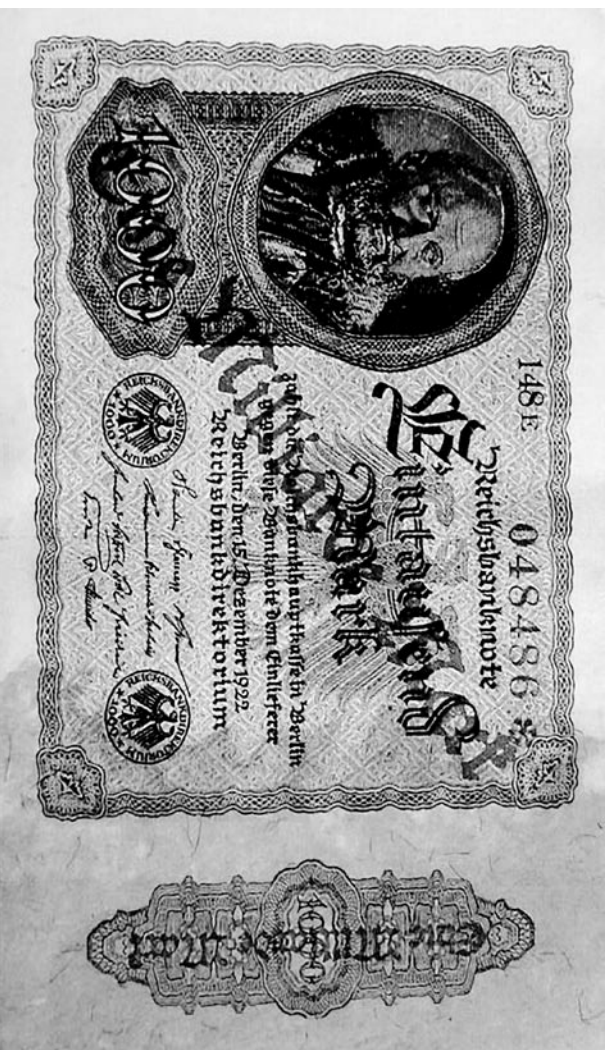 148E
Reichsbanknote
048486 *
Eintausend
Mark
zahlt die Reichsbankhauptkasse in Berlin
gegen diese Banknote dem Einlieferer
Berlin, den 15. Dezember 1922
Reichsbankdirektorium
1000
Eine Milliarde Mark
REICHSBANKDIREKTORIUM * 1000 *
REICHSBANKDIREKTORIUM * 1000 *
1000
Eine Milliarde Mark